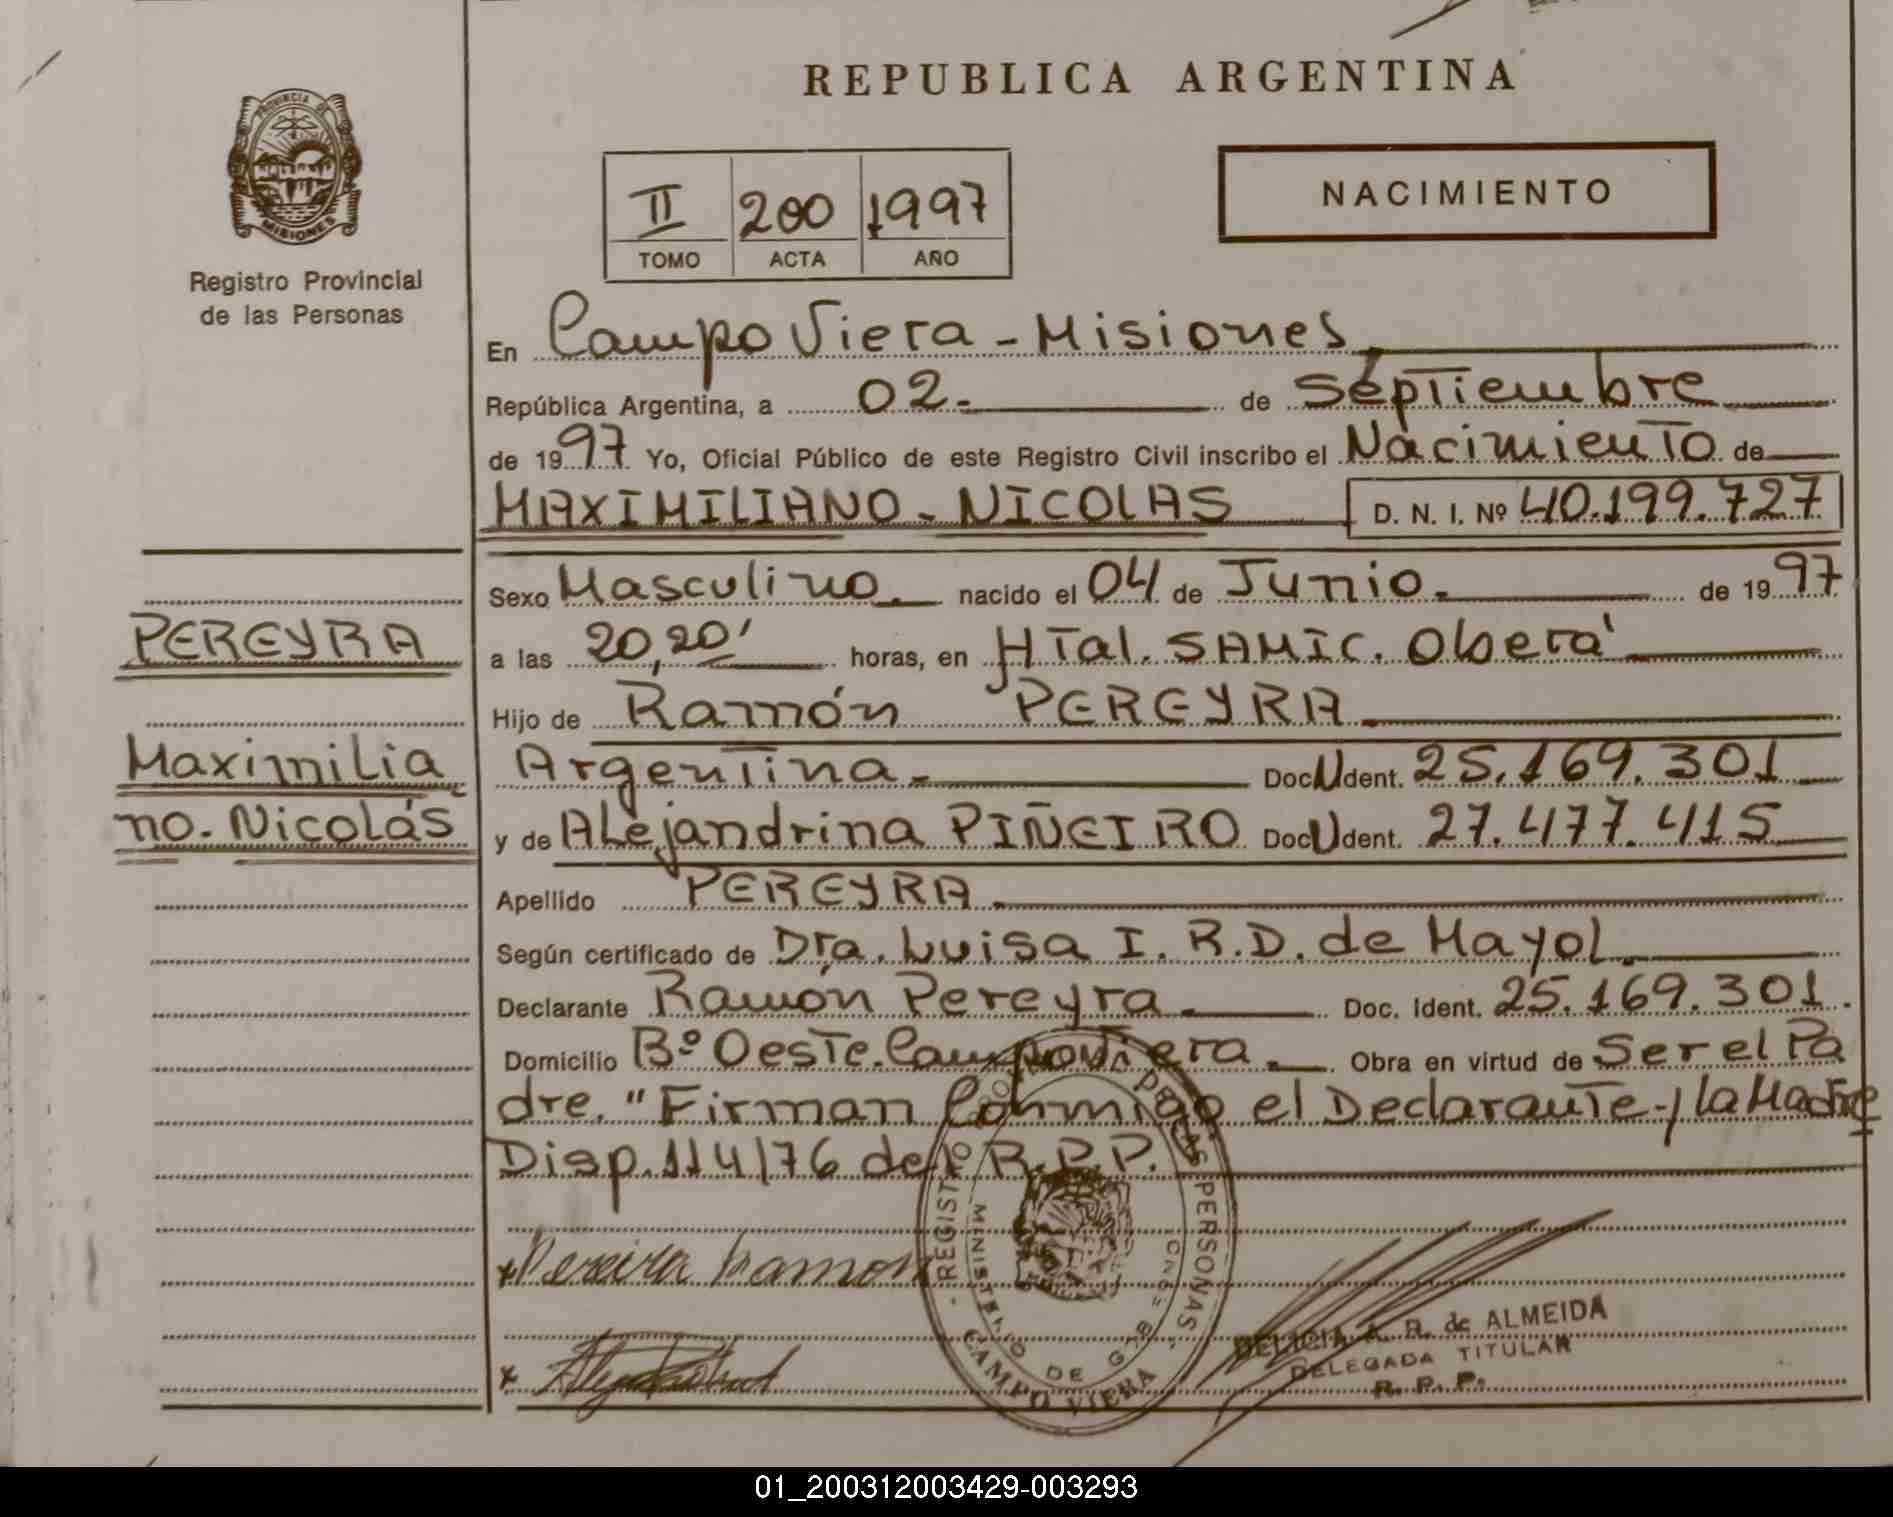 REPUBLICA ARGENTINA
PROVINCIA DE
MISIONES
Registro Provincial
de las Personas
II 200 1997
TOMO ACTA AÑO
NACIMIENTO
En Campo Viera - Misiones
República Argentina, a 02.- de Septiembre
de 1997 Yo, Oficial Público de este Registro Civil inscribo el Nacimiento de
MAXIMILIANO - NICOLAS D. N. I. Nº 40.199.727
Sexo Masculino. nacido el 04 de Junio. de 1997
PEREYRA
a las 20,20' horas, en HTal. SAMIC. Oberá
Hijo de Ramón PEREYRA
Maximilia
no. Nicolás
Argentina.- Doc U Ident. 25.169.301
y de Alejandrina PIÑEIRO Doc U Ident. 27.477.415
Apellido PEREYRA
Según certificado de Dra. Luisa I. R.D. de Mayol.
Declarante Ramón Pereyra Doc. Ident. 25.169.301.
Domicilio Bº Oeste. Campo Viera. Obra en virtud de Ser el Pa
dre. "Firman Conmigo el Declarante y la Madre
Disp. 114/76 del R.P.P.
Pereira Ramon
REGISTRO PERSONAS
MINISTERIO DE GOB
CAMPO VIERA
DELICIA A. R. de ALMEIDA
DELEGADA TITULAR
R. P. P.
01_200312003429-003293